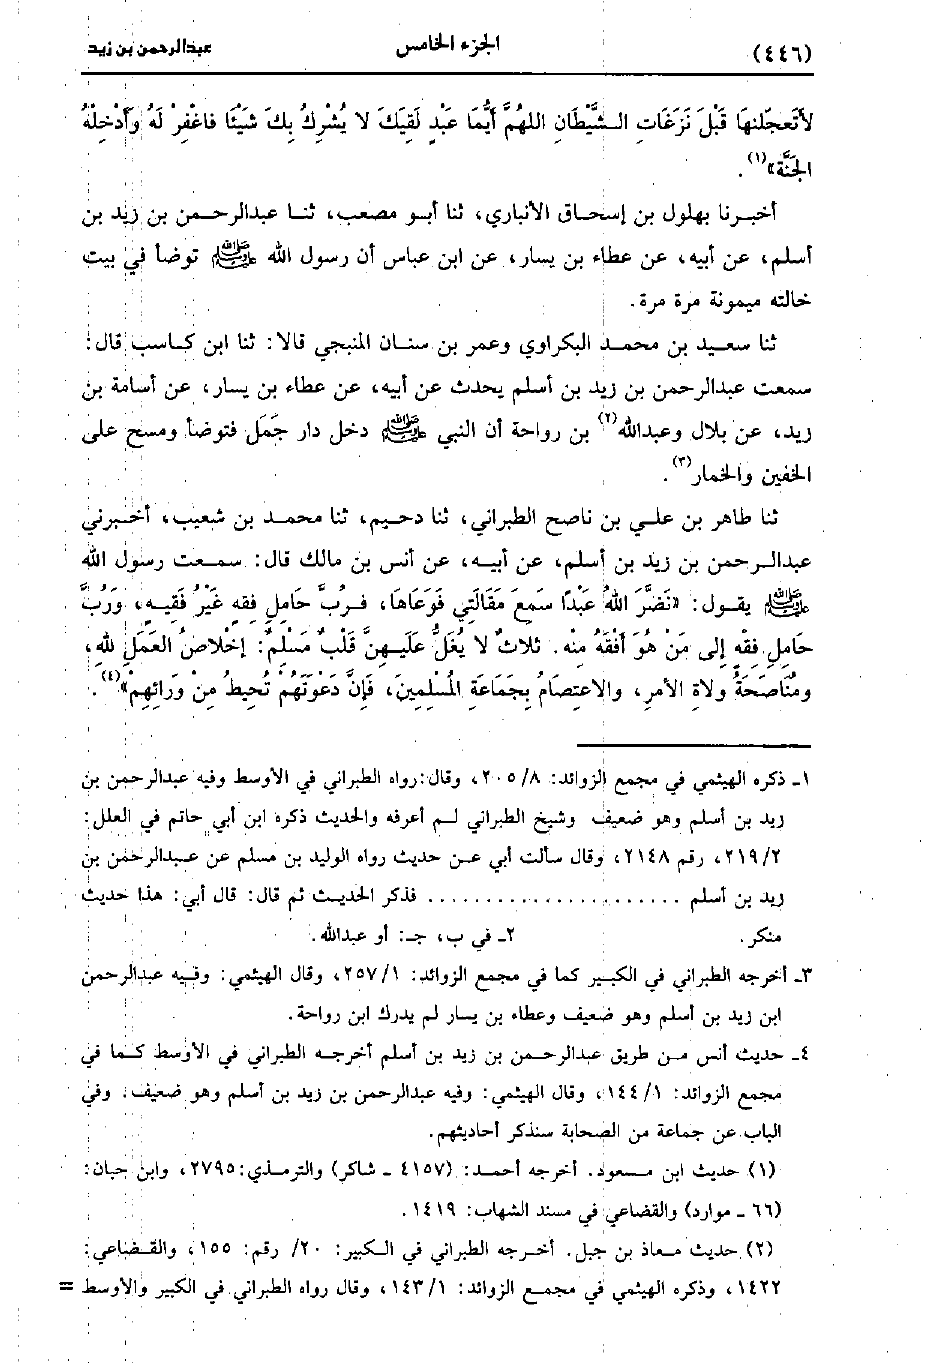 (٤٤٦) الجزء الخامس عبدالرحمن بن زيد
لأَتَعجَّلنهَا قَبْلَ نَزَغَاتِ الشَّيْطَانِ اللهُمَّ أَيُّمَا عَبْدٍ لَقِيَكَ لا يُشْرِكُ بِكَ شَيْئًا فَاغْفِرْ لَهُ وَأَدْخِلْهُ
الجَنَّةَ»(١).
أخبرنا بهلول بن إسحاق الأنباري، ثنا أبو مصعب، ثنا عبدالرحمن بن زيد بن
أسلم، عن أبيه، عن عطاء بن يسار، عن ابن عباس أن رسول الله ﷺ توضأ في بيت
خالته ميمونة مرة مرة.
ثنا سعيد بن محمد البكراوي وعمر بن سنان المنبجي قالا: ثنا ابن كاسب قال:
سمعت عبدالرحمن بن زيد بن أسلم يحدث عن أبيه، عن عطاء بن يسار، عن أسامة بن
زيد، عن بلال وعبدالله(٢) بن رواحة أن النبي ﷺ دخل دار جَمَل فتوضأ ومسح على
الخفين والخمار(٣).
ثنا طاهر بن علي بن ناصح الطبراني، ثنا دحيم، ثنا محمد بن شعيب، أخبرني
عبدالرحمن بن زيد بن أسلم، عن أبيه، عن أنس بن مالك قال: سمعت رسول الله
ﷺ يقول: «نَضَّرَ اللهُ عَبْدًا سَمِعَ مَقَالَتِي فَوَعَاهَا، فَرُبَّ حَامِلِ فِقهٍ غَيْرُ فَقِيهٍ، وَرُبَّ
حَامِلِ فِقْهٍ إِلى مَنْ هُوَ أَفْقَهُ مِنْه. ثلاثٌ لا يُغَلُّ عَلَيهِنَّ قَلْبُ مُسْلِمٍ: إخْلاصُ العَمَلِ للهِ،
ومُنَاصَحَةُ ولاة الأمرِ، والاعتِصَامُ بِجَمَاعَةِ المُسْلِمِينَ، فَإنَّ دَعْوَتَهُمْ تُحيطُ مِنْ وَرَائِهِمْ»(٤).
١ـ ذكره الهيثمي في مجمع الزوائد: ٢٠٥/٨، وقال: رواه الطبراني في الأوسط وفيه عبدالرحمن بن
زيد بن أسلم وهو ضعيف وشيخ الطبراني لم أعرفه والحديث ذكره ابن أبي حاتم في العلل:
٢١٩/٢، رقم ٢١٤٨، وقال سألت أبي عن حديث رواه الوليد بن مسلم عن عبدالرحمن بن
زيد بن أسلم ...................... فذكر الحديث ثم قال: قال أبي: هذا حديث
منكر. ٢ـ في ب، جـ: أو عبدالله.
٣ـ أخرجه الطبراني في الكبير كما في مجمع الزوائد: ٢٥٧/١، وقال الهيثمي: وفيه عبدالرحمن
ابن زيد بن أسلم وهو ضعيف وعطاء بن يسار لم يدرك ابن رواحة.
٤ـ حديث أنس من طريق عبدالرحمن بن زيد بن أسلم أخرجه الطبراني في الأوسط كما في
مجمع الزوائد: ١٤٤/١، وقال الهيثمي: وفيه عبدالرحمن بن زيد بن أسلم وهو ضعيف. وفي
الباب عن جماعة من الصحابة سنذكر أحاديثهم.
(١) حديث ابن مسعود. أخرجه أحمد: (٤١٥٧ ـ شاكر) والترمذي: ٢٧٩٥، وابن حبان:
(٦٦ ـ موارد) والقضاعي في مسند الشهاب: ١٤١٩.
(٢) حديث معاذ بن جبل. أخرجه الطبراني في الكبير: ٢٠/ رقم: ١٥٥، والقضاعي:
١٤٢٢، وذكره الهيثمي في مجمع الزوائد: ١٤٣/١، وقال رواه الطبراني في الكبير والأوسط =